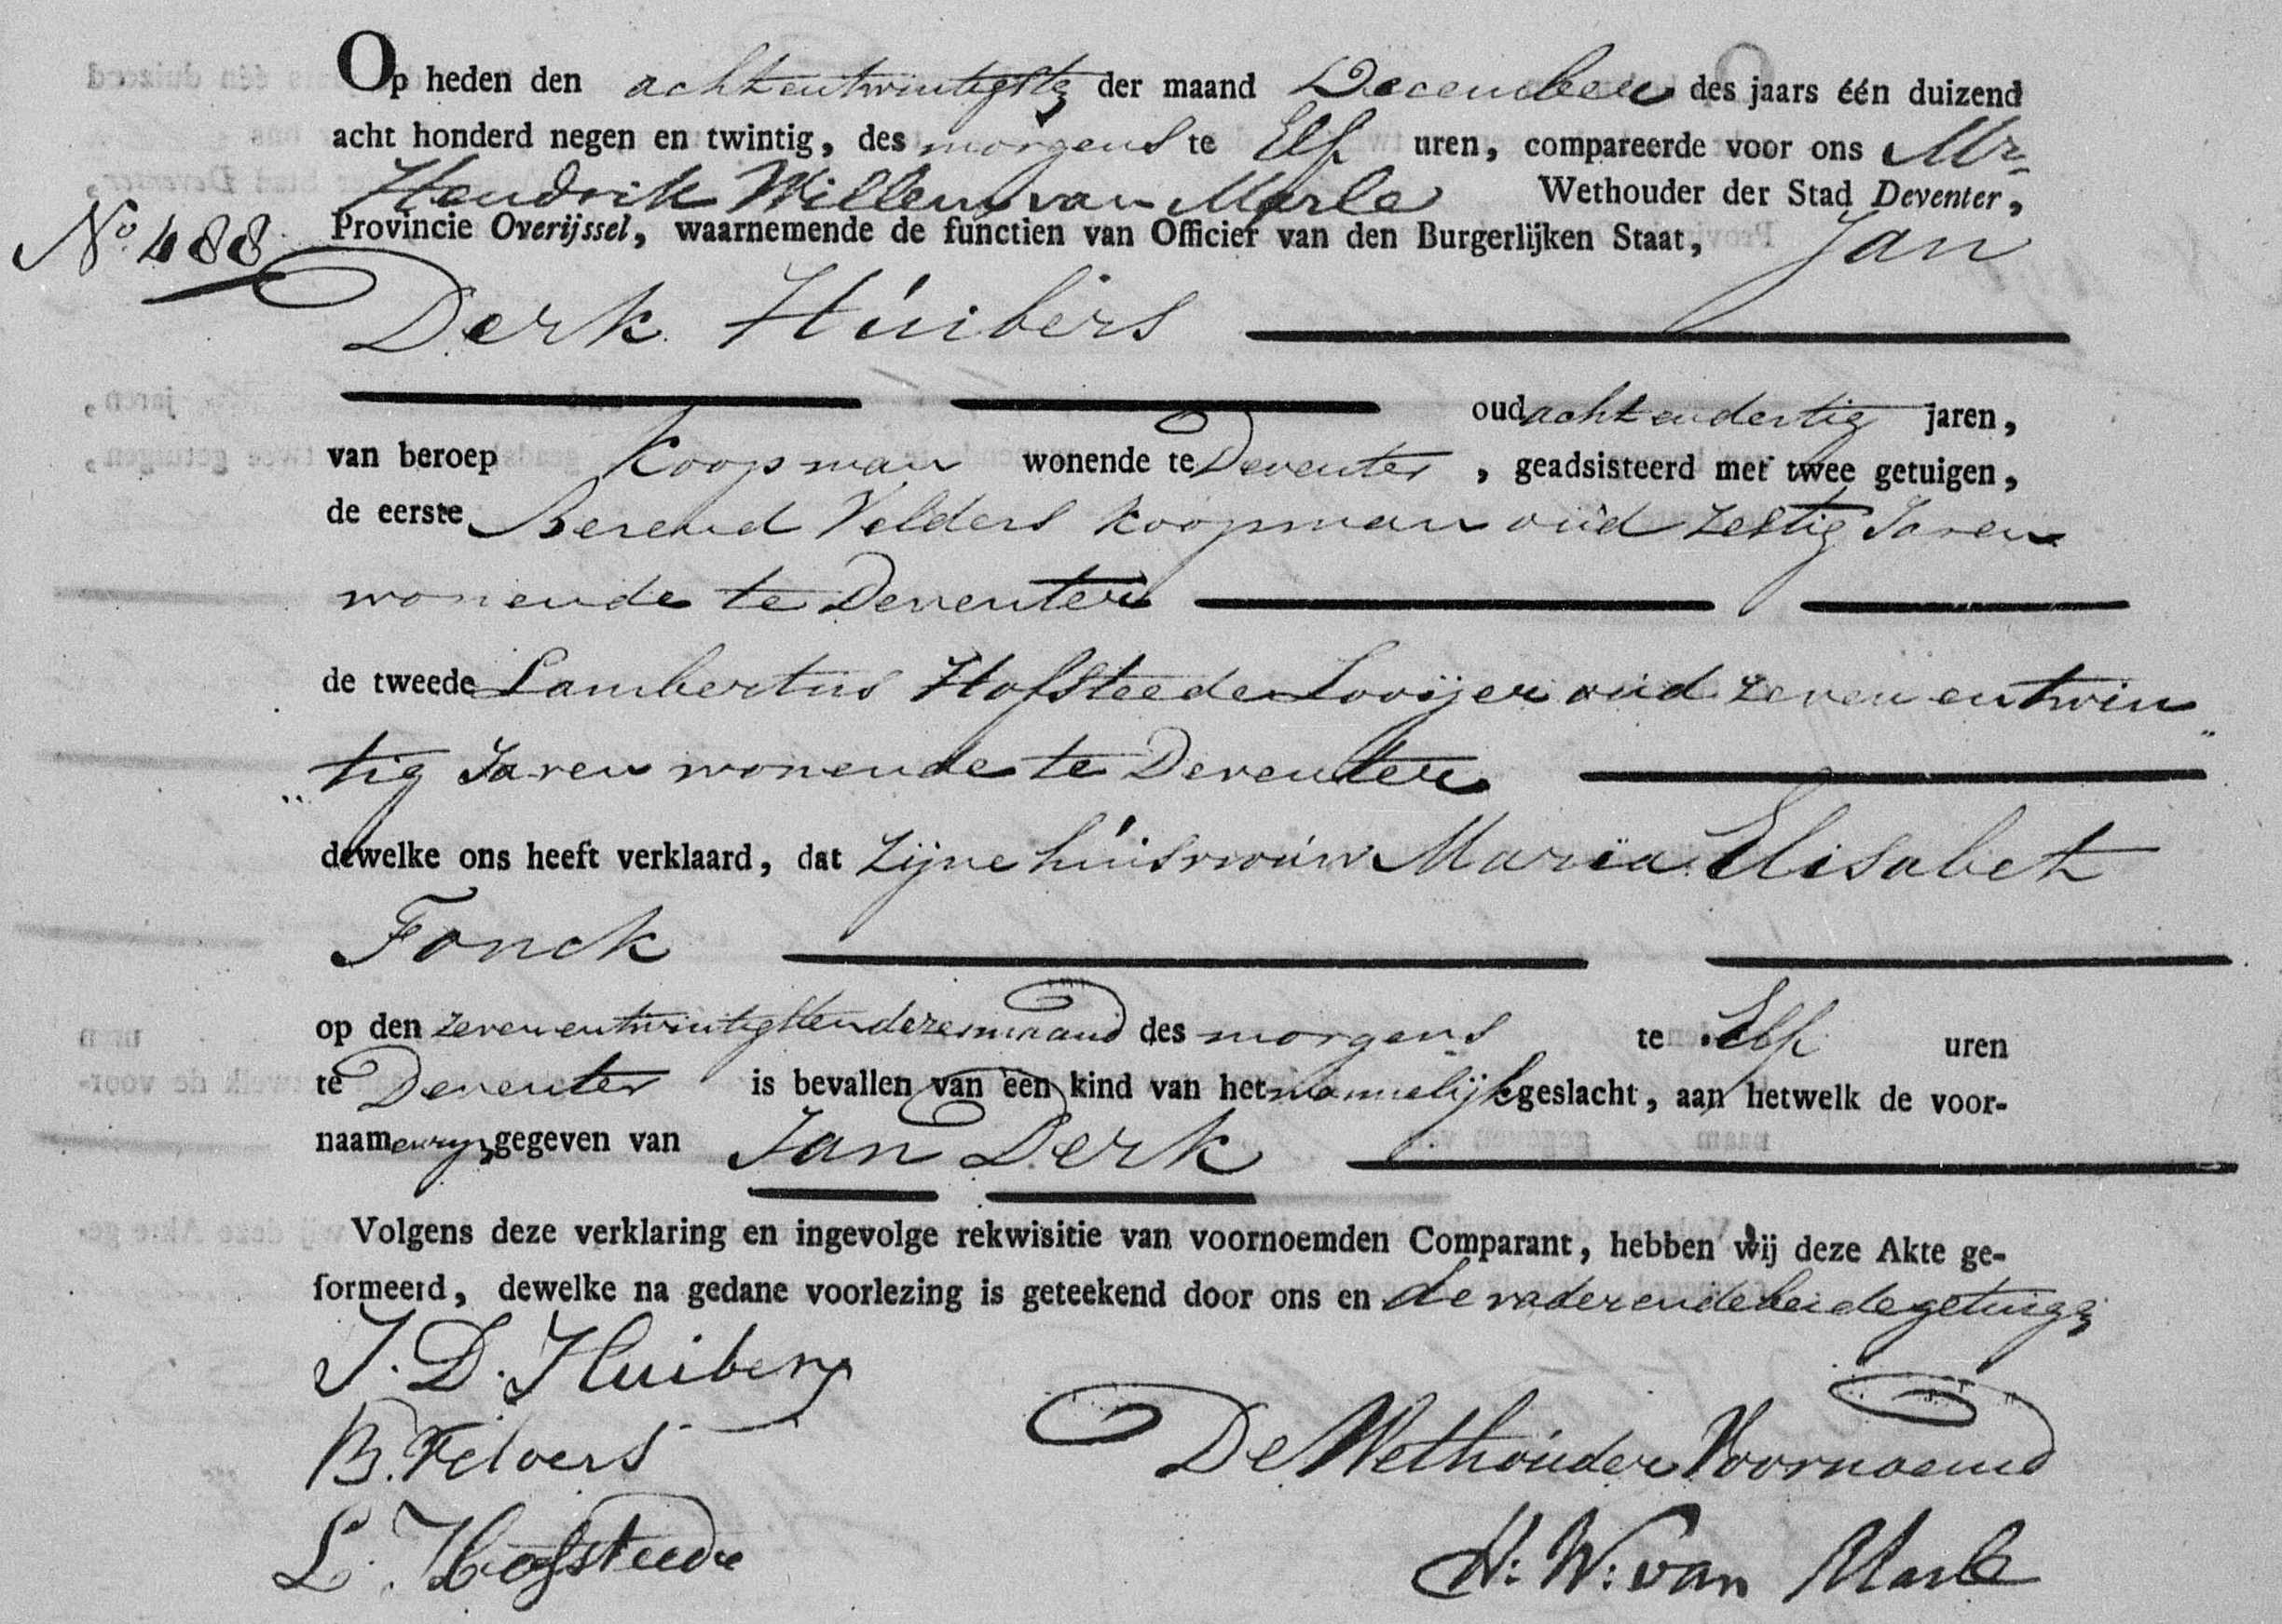 Op heden den achtentwintigste der maand December des jaars één duizend
acht honderd negen en twintig, des morgens te Elf uren, compareerde voor ons Mr.
Hendrik Willem van Marle Wethouder der Stad Deventer,
No. 488
Provincie Overijssel, waarnemende de functien van Officier van den Burgerlijken Staat, Jan
Derk Huibers
oud achtendertig jaren,
van beroep Koopman wonende te Deventer, geadsisteerd met twee getuigen,
de eerste Berend Velders Koopman oud Zestig Jaren
wonende te Deventer
de tweede Lambertus Hofsteede Looijer oud zevenentwin„
„tig Jaren wonende te Deventer
dewelke ons heeft verklaard, dat zijne huisvrouw Maria Elisabet
Fonck
op den zevenentwintigsten dezer maand des morgens te Elf uren
te Deventer is bevallen van een kind van het mannelijk geslacht, aan hetwelk de voor-
naamen zijn gegeven van Jan Derk
Volgens deze verklaring en ingevolge rekwisitie van voornoemden Comparant, hebben wij deze Akte ge-
formeerd, dewelke na gedane voorlezing is geteekend door ons en de vader en de beide getuigen
J. D. Huibers
B. Velders
L. Hofsteede
De Wethouder Voornoemd
H: W: van Marle